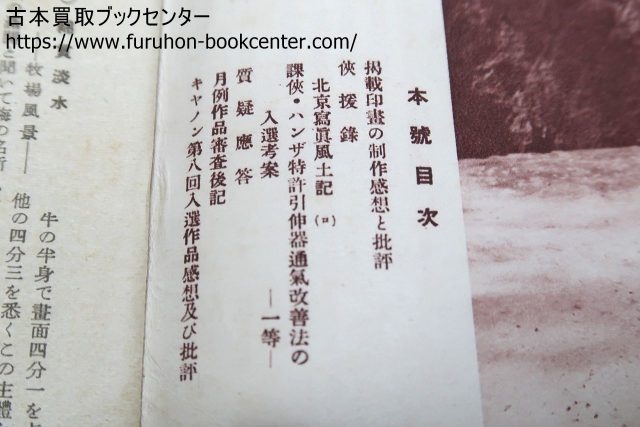 古本買取ブックセンター
https://www.furuhon-bookcenter.com/
本號目次
掲載印畫の制作感想と批評
俠援錄
北京寫眞風土記 (ロ)
課俠・ハンザ特許引伸器通氣改善法の
入選考案 ―一等―
質疑應答
月例作品審査後記
キヤノン第八回入選作品感想及び批評
牛の半身で畫面四分一を
他の四分三を悉くこの主體
淡水
――牧場風景――
聞いて海の名所